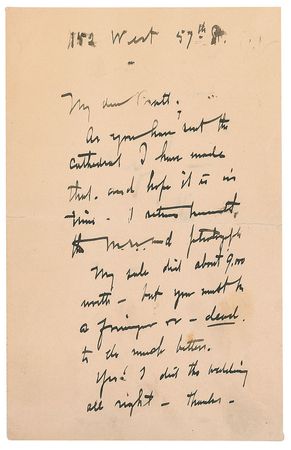 152 West 57th St.
My dear Pratt,
As you have sent the
cathedral I have made
that. and hope it is in
time. I return herewith
the M.S. and photograph
My sale did about 9,000
worth – but you must be
a foreigner or – dead.
to do much better.
Yes! I did the wedding
all right – thanks –